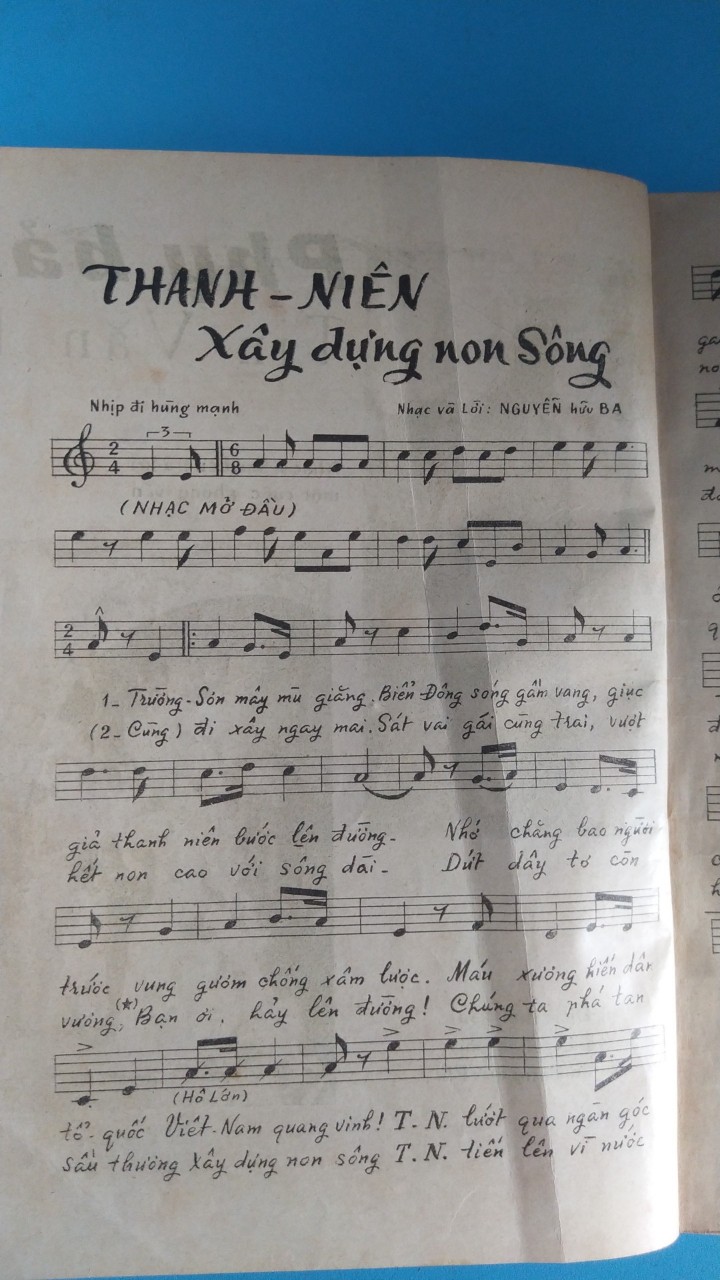 THANH - NIÊN
Xây dựng non Sông
Nhịp đi hùng mạnh
Nhạc và Lời: NGUYỄN hữu BA
3
2
4
6
8
(NHẠC MỞ ĐẦU)
2
4
1_ Trường-Sơn mây mù giăng. Biển Đông sóng gầm vang, giục
(2_ Cùng) đi xây ngay mai. Sát vai gái cùng trai, vượt
giả thanh niên bước lên đường_ Nhớ chăng bao người
hết non cao với sông dài_ Dứt dây tơ còn
trước vung gươm chống xâm lược. Máu xương hiến dân
vương, (*) Bạn ơi, hảy lên đường! Chúng ta phá tan
(Hô Lớn)
tổ-quốc Việt-Nam quang vinh! T.N. lướt qua ngàn góc
sầu thương Xây dựng non sông T.N. tiến lên vì nước